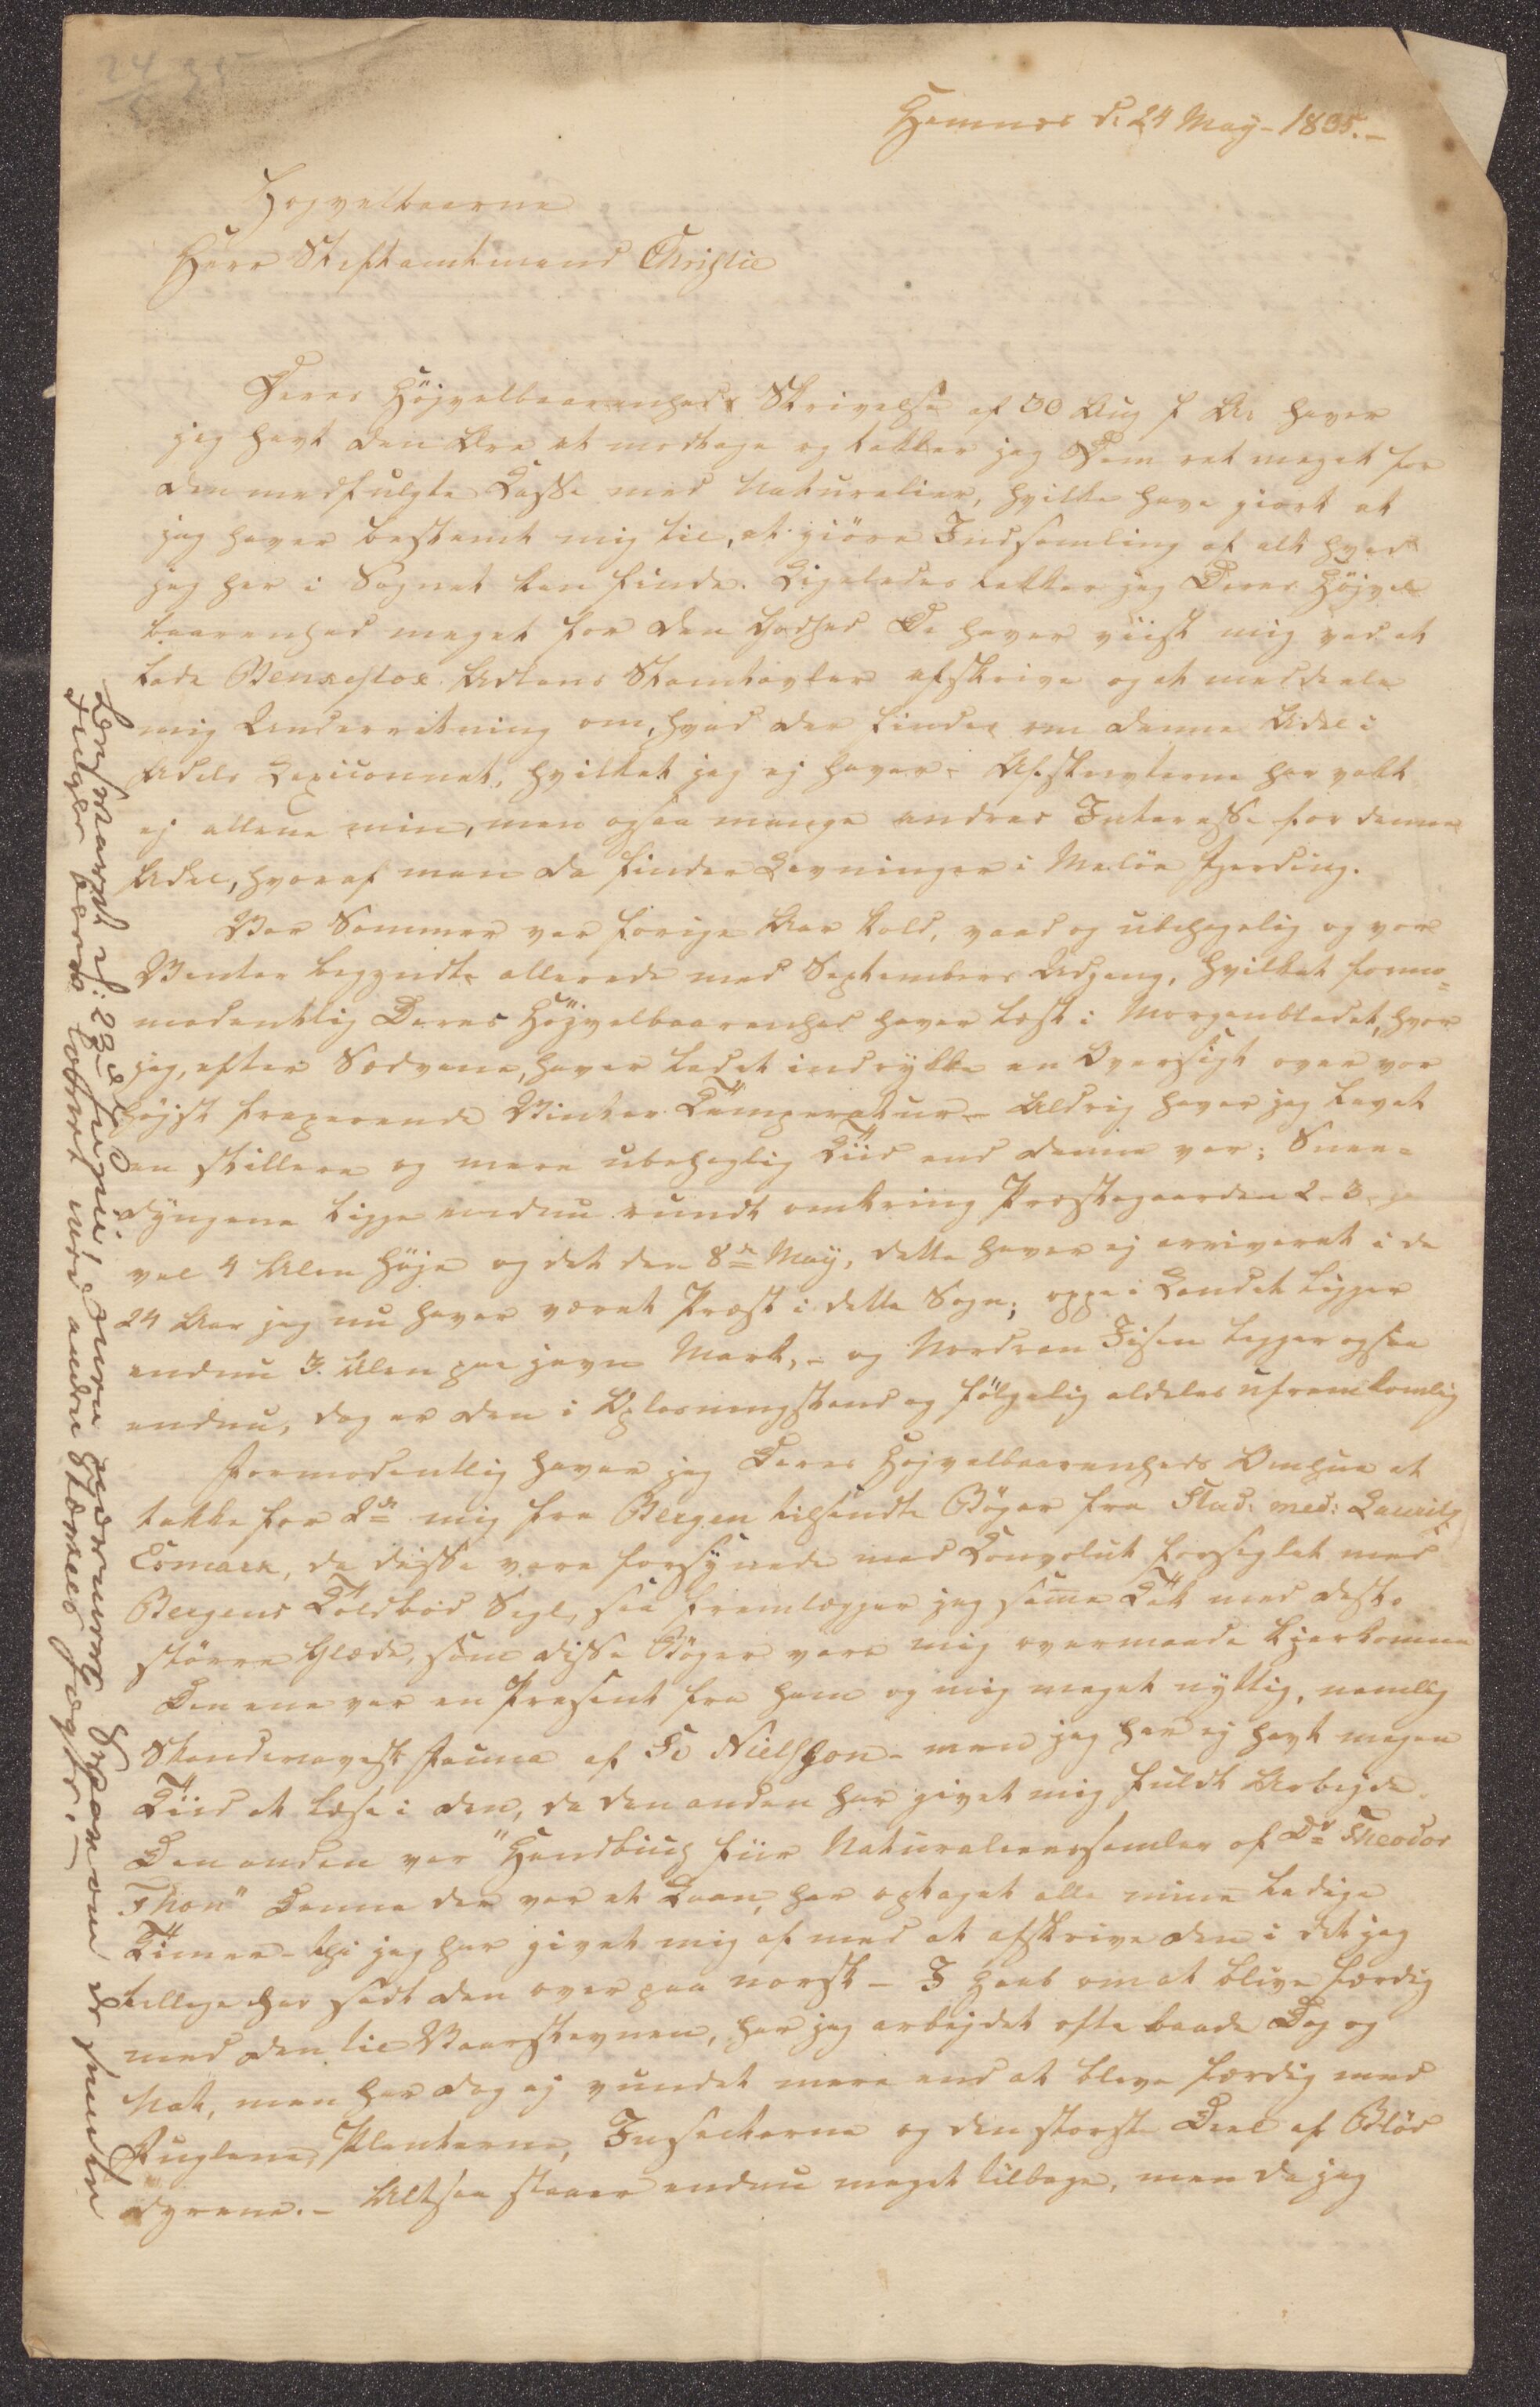 24/5 35
Hemnes d: 24 May - 1835. -
Høyvelbaarne
Herr Stiftamtmand Christie
Deres Höjvelbaarenheds Skrivelse af 30 Aug f. Ar: haver
jeg havt den Ære at modtage og takker jeg Dem ret meget for
den medfulgte Casse med Naturalier, hvilke have giort at
jeg haver bestemt mig til, at giöre Indsamling af alt hvad
jeg her i Sognet kan finde. Ligeledes takker jeg Deres Höjvel
baarenhed meget for den Godhed De haver viist mig ved at
lade Benkestok Adlens Stamtavler afskrive og at meddele
mig Underretning om, hvad der findes om denne Adel i
Adels Lexiconnet, hvilket jeg ej haver. Afskrivterne har vakt
ej allene min, men ogsaa mange andres Interesse for denne
Adel, hvoraf man da finder Levninger i Melöe Fjerding.
Vor Sommer var forige Aar kold, vaad og ubehagelig og vor
Venter begyndte allerede med Septembers Udgang, hvilket formo=
modentlig Deres Höjvelbaarenhed haver læst i Morgenbladet, hvor
jeg, efter Sædvane, haver ladet indrykke en Oversigt over vor
højst fraperende Vinter Temperatur. - Aldrig haver jeg levet
en stillere og mere ubehaglig Tiid end denne var; Snee=
dyngene ligge endnu rundt omkring Præstegaarden 2 - 3 ja
vel 4 Alen höje og det den 8de May, dette haver ej arriveret i de
24 Aar jeg nu haver været Præst i dette Sogn; oppe i Landet ligger
endnu 3. Alen paa javn Mark, - og Nordran Iisen ligger ogsaa
endnu, dog er den i Oplosningstand og fölgelig aldeles ufremkomlig
Formodentlig haver jeg Deres Höjvelbaarenheds Omhue at
takke for 2de mig fra Bergen tilsendte Böger fra Stud: med: Lauritz
Esmark, da disse vare forsynede med Convolut forseglet med
Bergens Toldbod Segl, saa fremlægger jeg samme Tak med desto
större Glæde, som disse Böger vare mig overmaade kjerkomne
Den ene var en Present fra ham og mig meget nyttig, nemlig
Skandinavisk Fauna af Sv Nielsson - men jeg har ej havt megen
Tiid at læse i den, da den anden har givet mig fuldt Arbejde.
Den anden var "Handbuch für Naturaliensamler af Dr Theodor
Thon" Denne der var et Laan, har optaget alle mine ledige
Timer - thi jeg har givet mig af med at afskrive den i det jeg
tillige har sadt den over paa norsk - I Haab om at blive færdig
med den til Vaarstevnen, har jeg arbejdet ofte baade Dag og
Nat, men har dog ej vundet mere end at bleve færdig med
Fuglene, Planterne, Insecterne og den storste Deel af Blöd
dyrene. - Altsaa staaer endnu meget tilbage, men da jeg